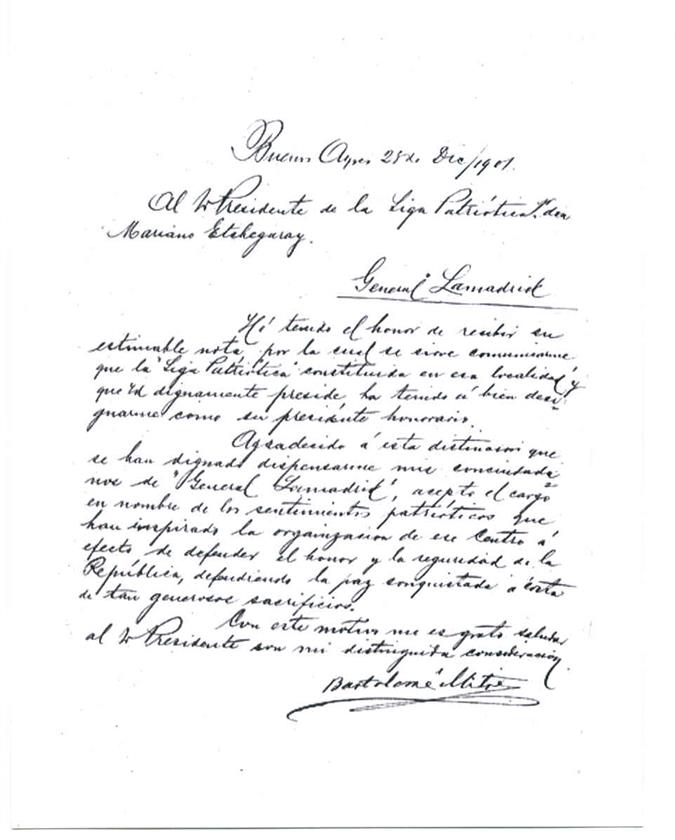 Buenos Ayres 28 de Dic/1901.
Al Sr Presidente de la Liga Patriótica Sr don
Mariano Etchegaray.
General Lamadrid
Hé tenido el honor de recibir su
estimable nota, por la cual se sirve comunicarme
que la "Liga Patriótica" constituida en esa localidad y
que Ud dignamente preside ha tenido á bien desi-
gnarme como su presidente honorario.
Agradecido á esta distincion que
se han dignado dispensarme mis conciudada
nos de "General Lamadrid", acepto el cargo
en nombre de los sentimientos patrióticos que
han inspirado la organizacion de ese Centro á
efecto de defender el honor y la seguridad de la
República, defendiendo la paz conquistada á costa
de tan generosos sacrificios.
Con este motivo me es grato saludar
al Sr Presidente con mi distinguida consideración.
Bartolomé Mitre